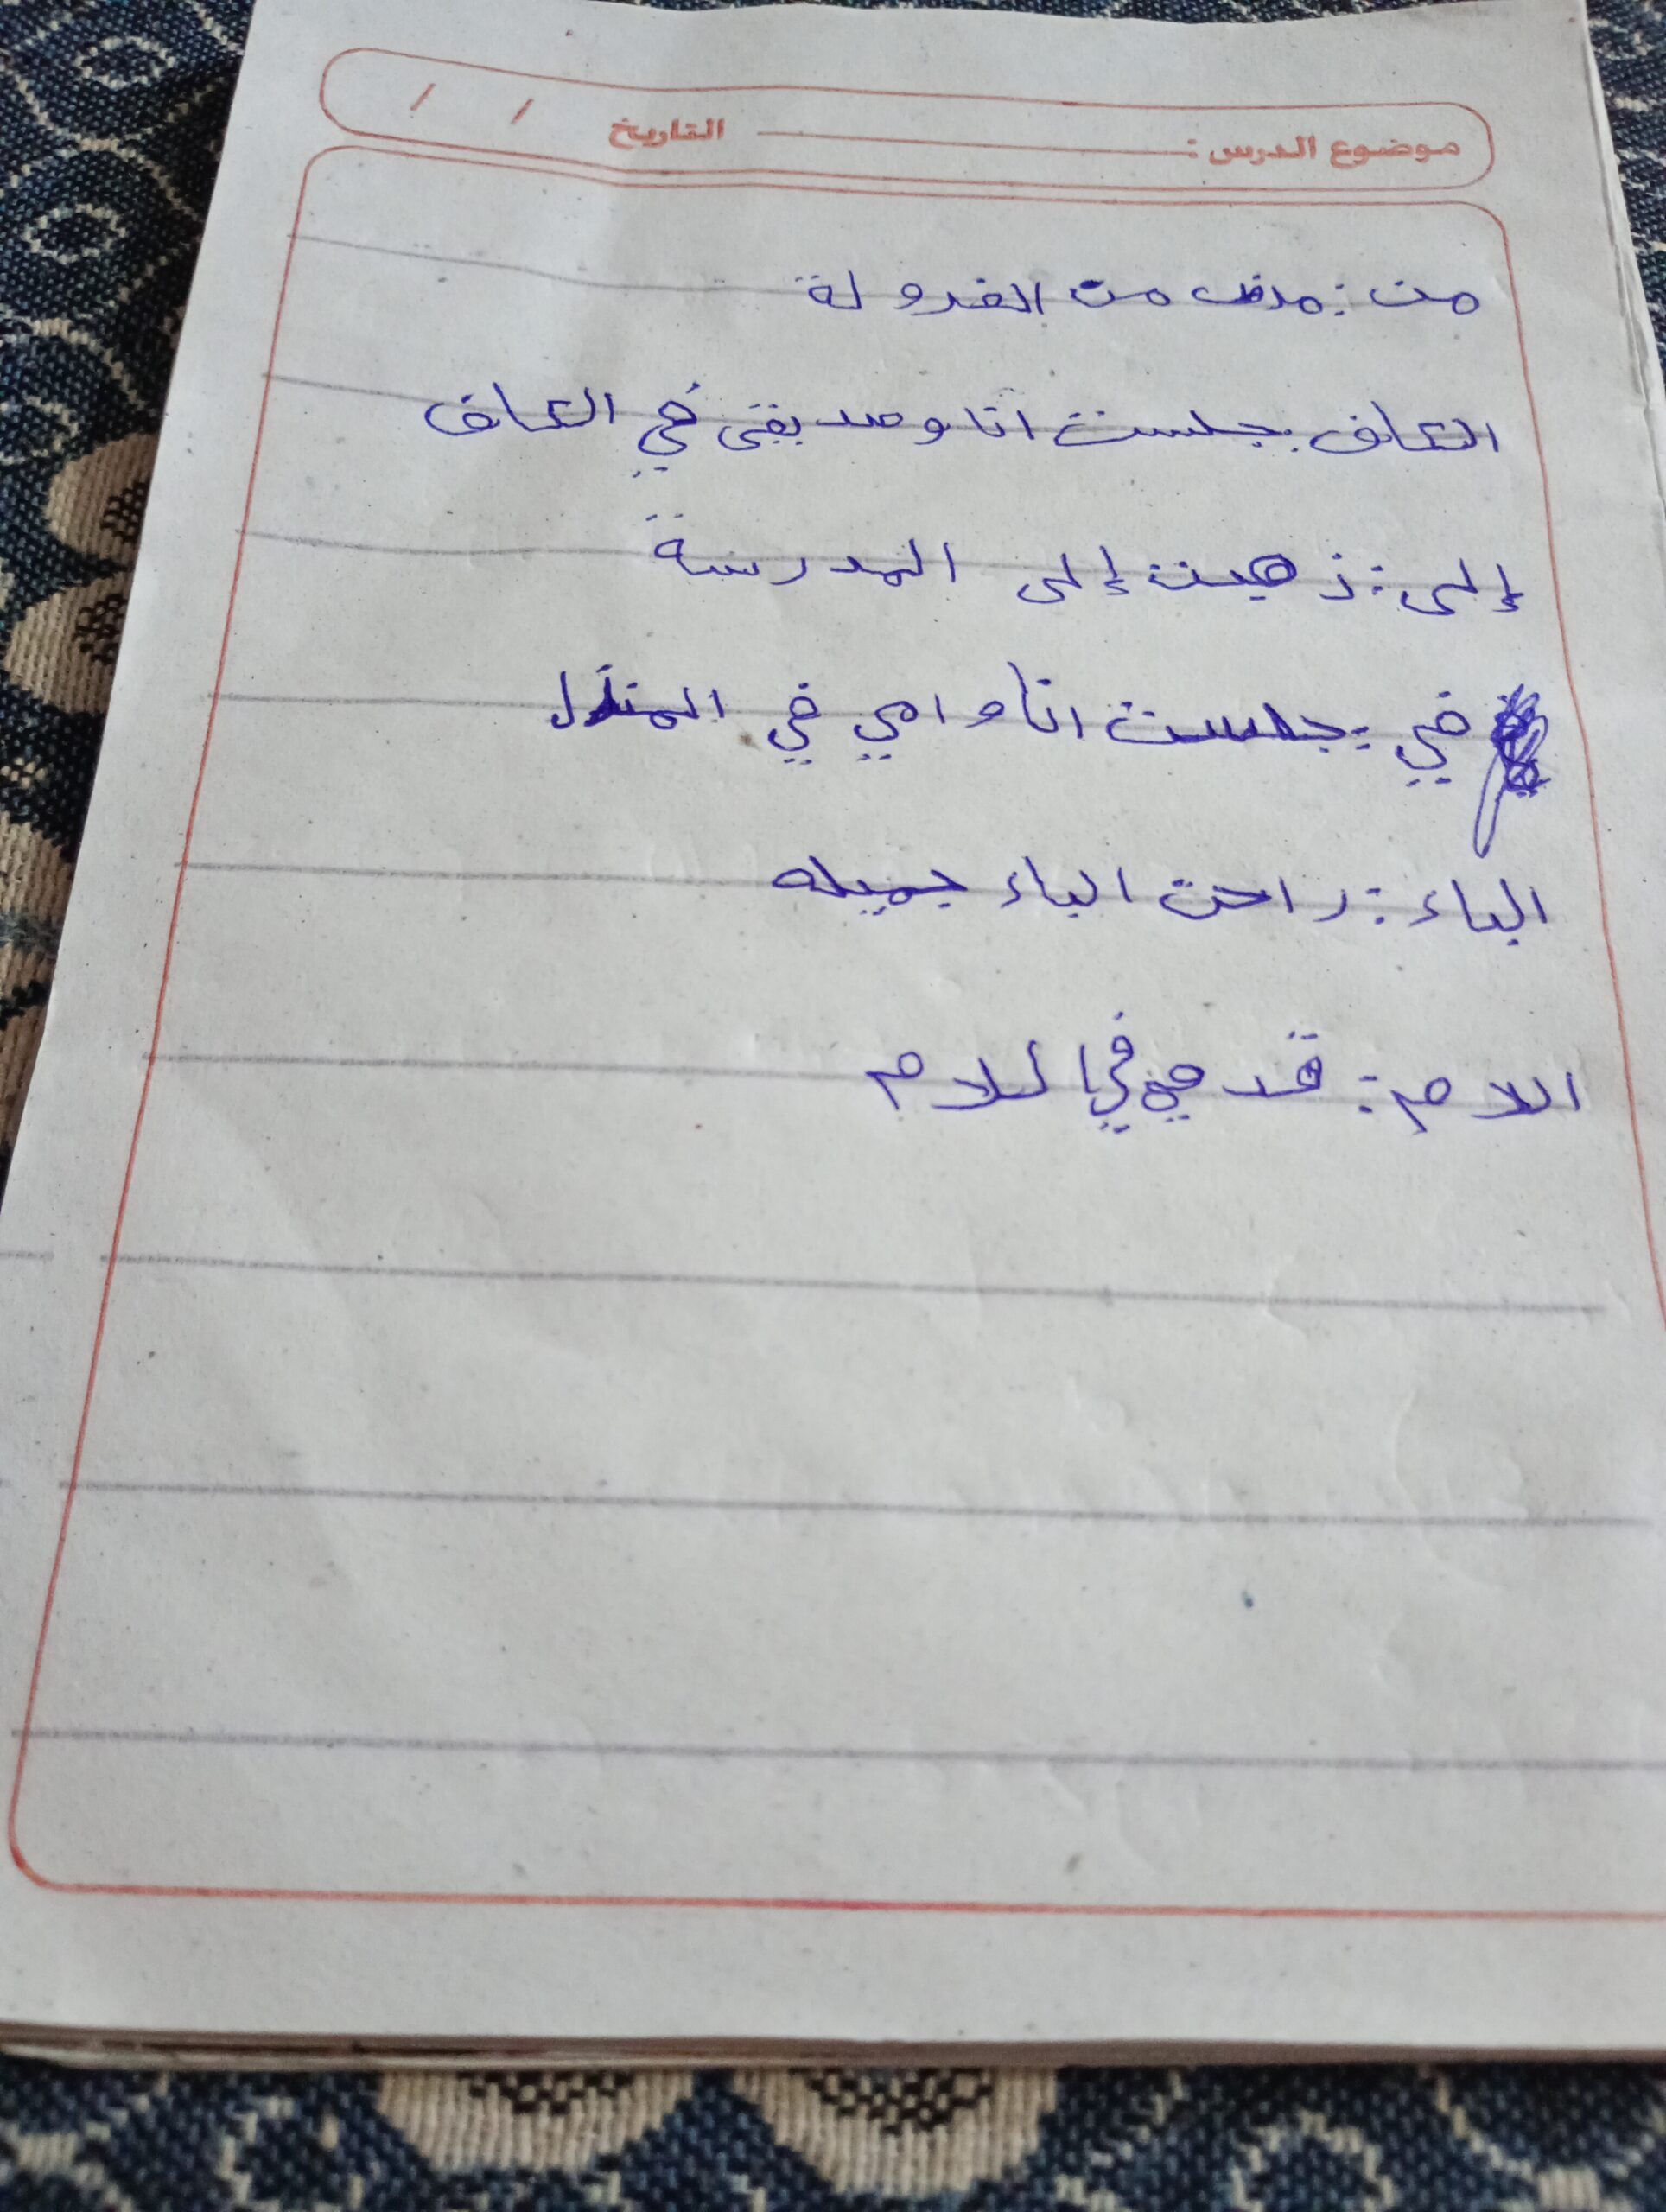 موضوع الدرس : التاريخ / /
من : مرض من الغدولة
الكاف : جلست انا وصديقى في الكاف
إلى : ذهبت إلى المدرسة
في : جلست انا وامي في المنزل
الباء : راحت الباء جميله
اللام : قدمي في اللام